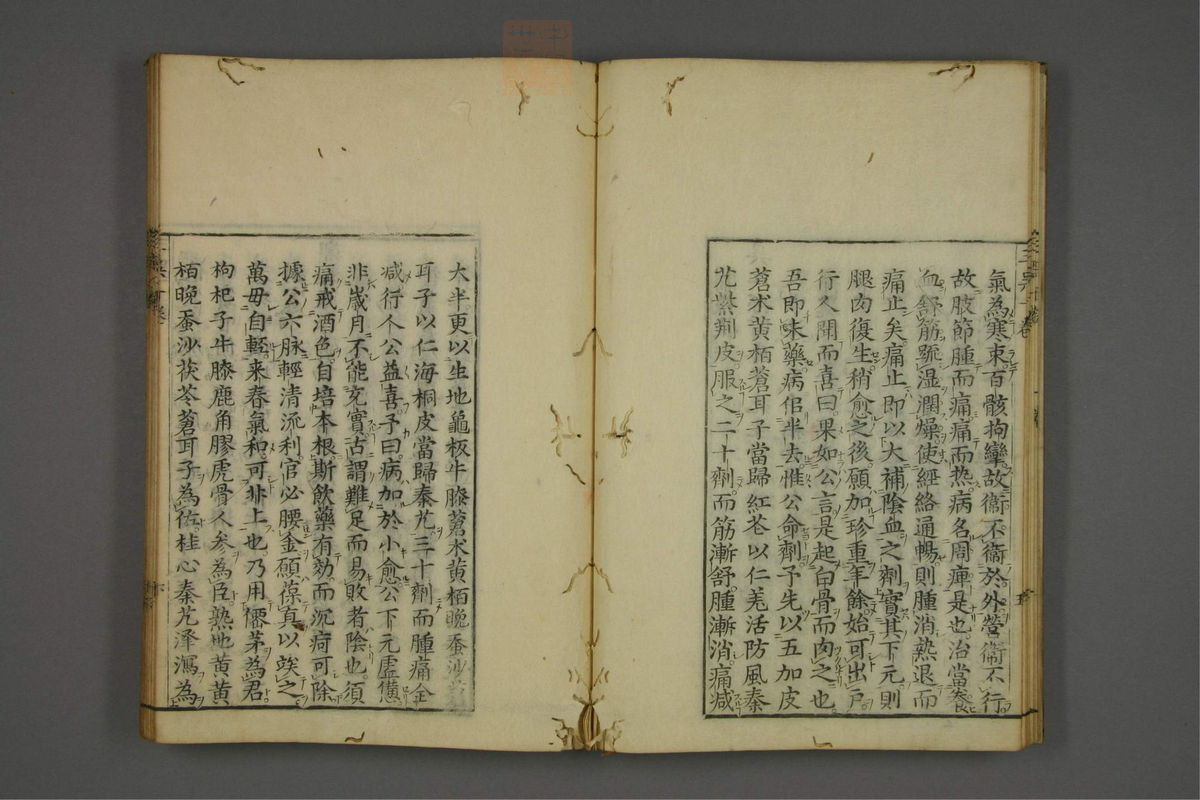 氣為寒束百骸拘攣故衞不衞於外營衞不行
故肢節腫而痛痛而热病名周痺是也治當養
血舒筋䟽湿潤燥使經絡通暢則腫消热退而
痛止矣痛止即以大補陰血之劑實其下元則
腿肉復生稍愈之後願加珍重年餘始可出戸
行人聞而喜曰果如公言是起白骨而肉之也
吾即未藥病佀半去惟公命劑予先以五加皮
蒼术黄栢蒼耳子當歸紅芲以仁羌活防風秦
艽紫荆皮服之二十劑而筋漸舒腫漸消痛減
大半更以生地龜板牛膝蒼术黄栢晚蚕沙蒼
耳子以仁海桐皮當歸秦艽三十劑而腫痛全
减行人公益喜予曰病加於小愈公下元虚憊
非歳月不能充實古謂難足而易敗者陰也須
痛戒酒色自培本根斯飲藥有効而沉疴可除
據公六脉輕清流利官必腰金願葆真以竢之
萬毋自輕来春氣和可北上也乃用僊茅為君
枸杞子牛膝鹿角膠虎骨人参為臣熟地黄黄
栢晚蚕沙茯苓蒼耳子為佐桂心秦艽泽瀉為